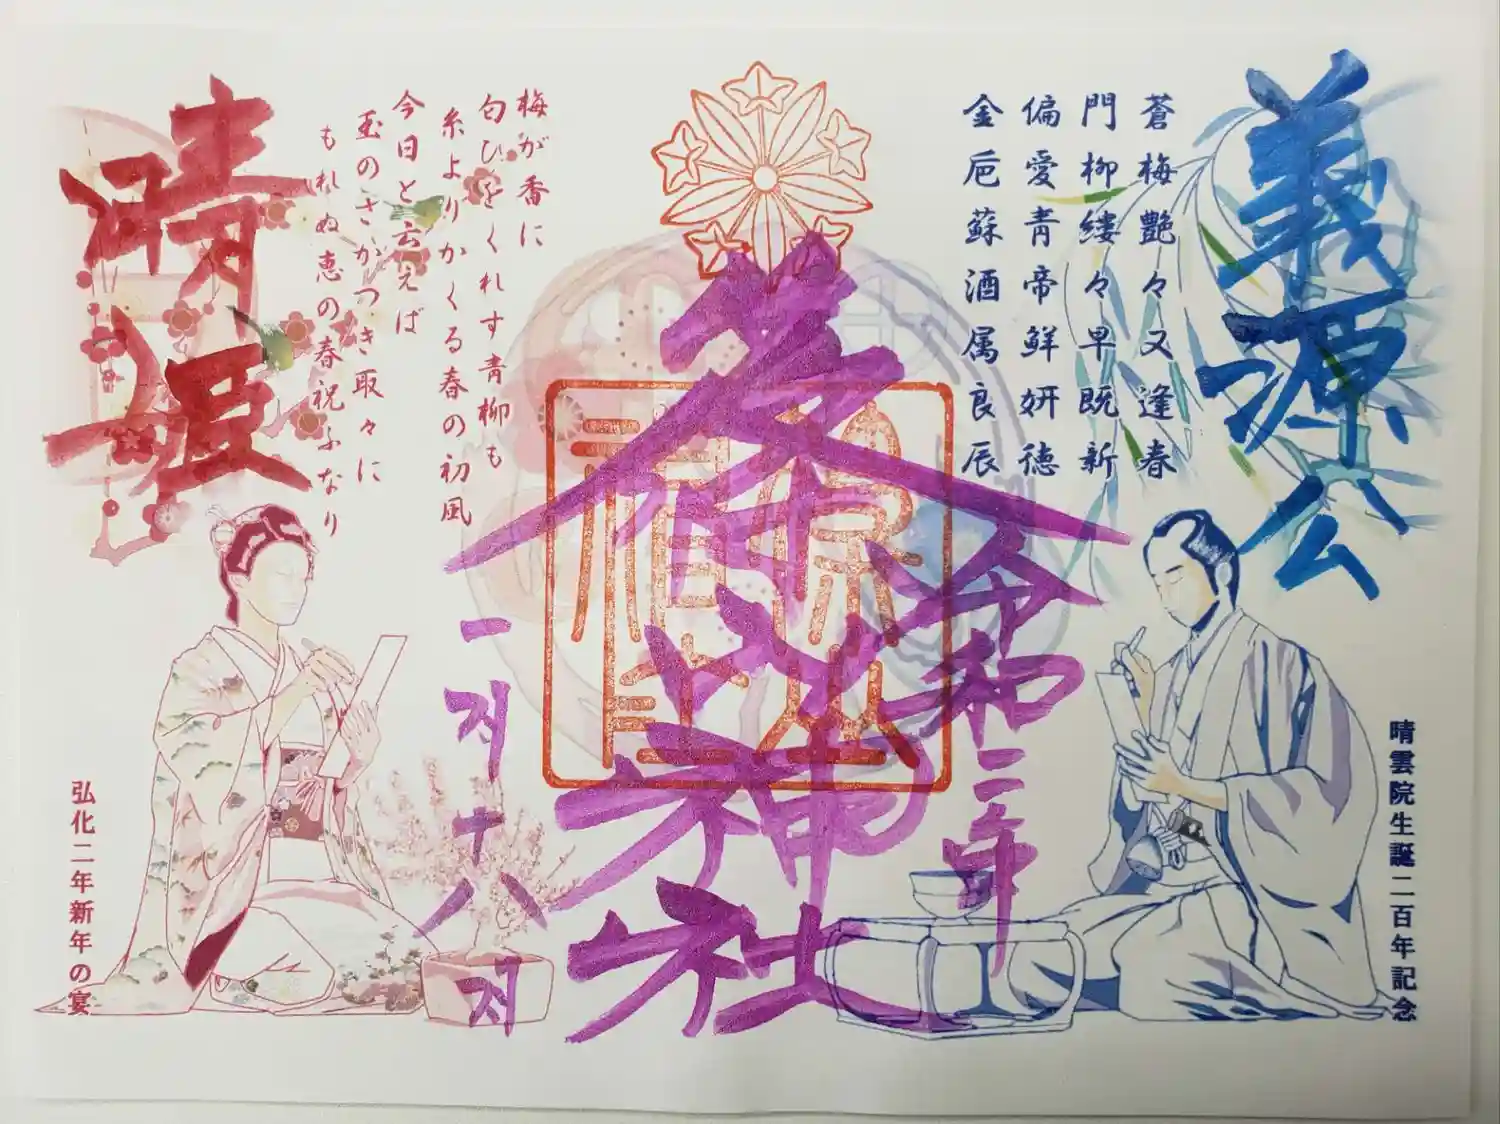 義源公
蒼梅艶々又逢春
門柳縷々早既新
偏愛青帝鮮妍徳
金巵蘇酒属良辰
晴雲院生誕二百年記念
令和二年
神社
一月十八日
梅が香に
匂ひをくれす青柳も
糸よりかくる春の初風
今日と云えば
玉のさかつき取々に
もれぬ恵の春祝ふなり
晴姫
弘化二年新年の宴